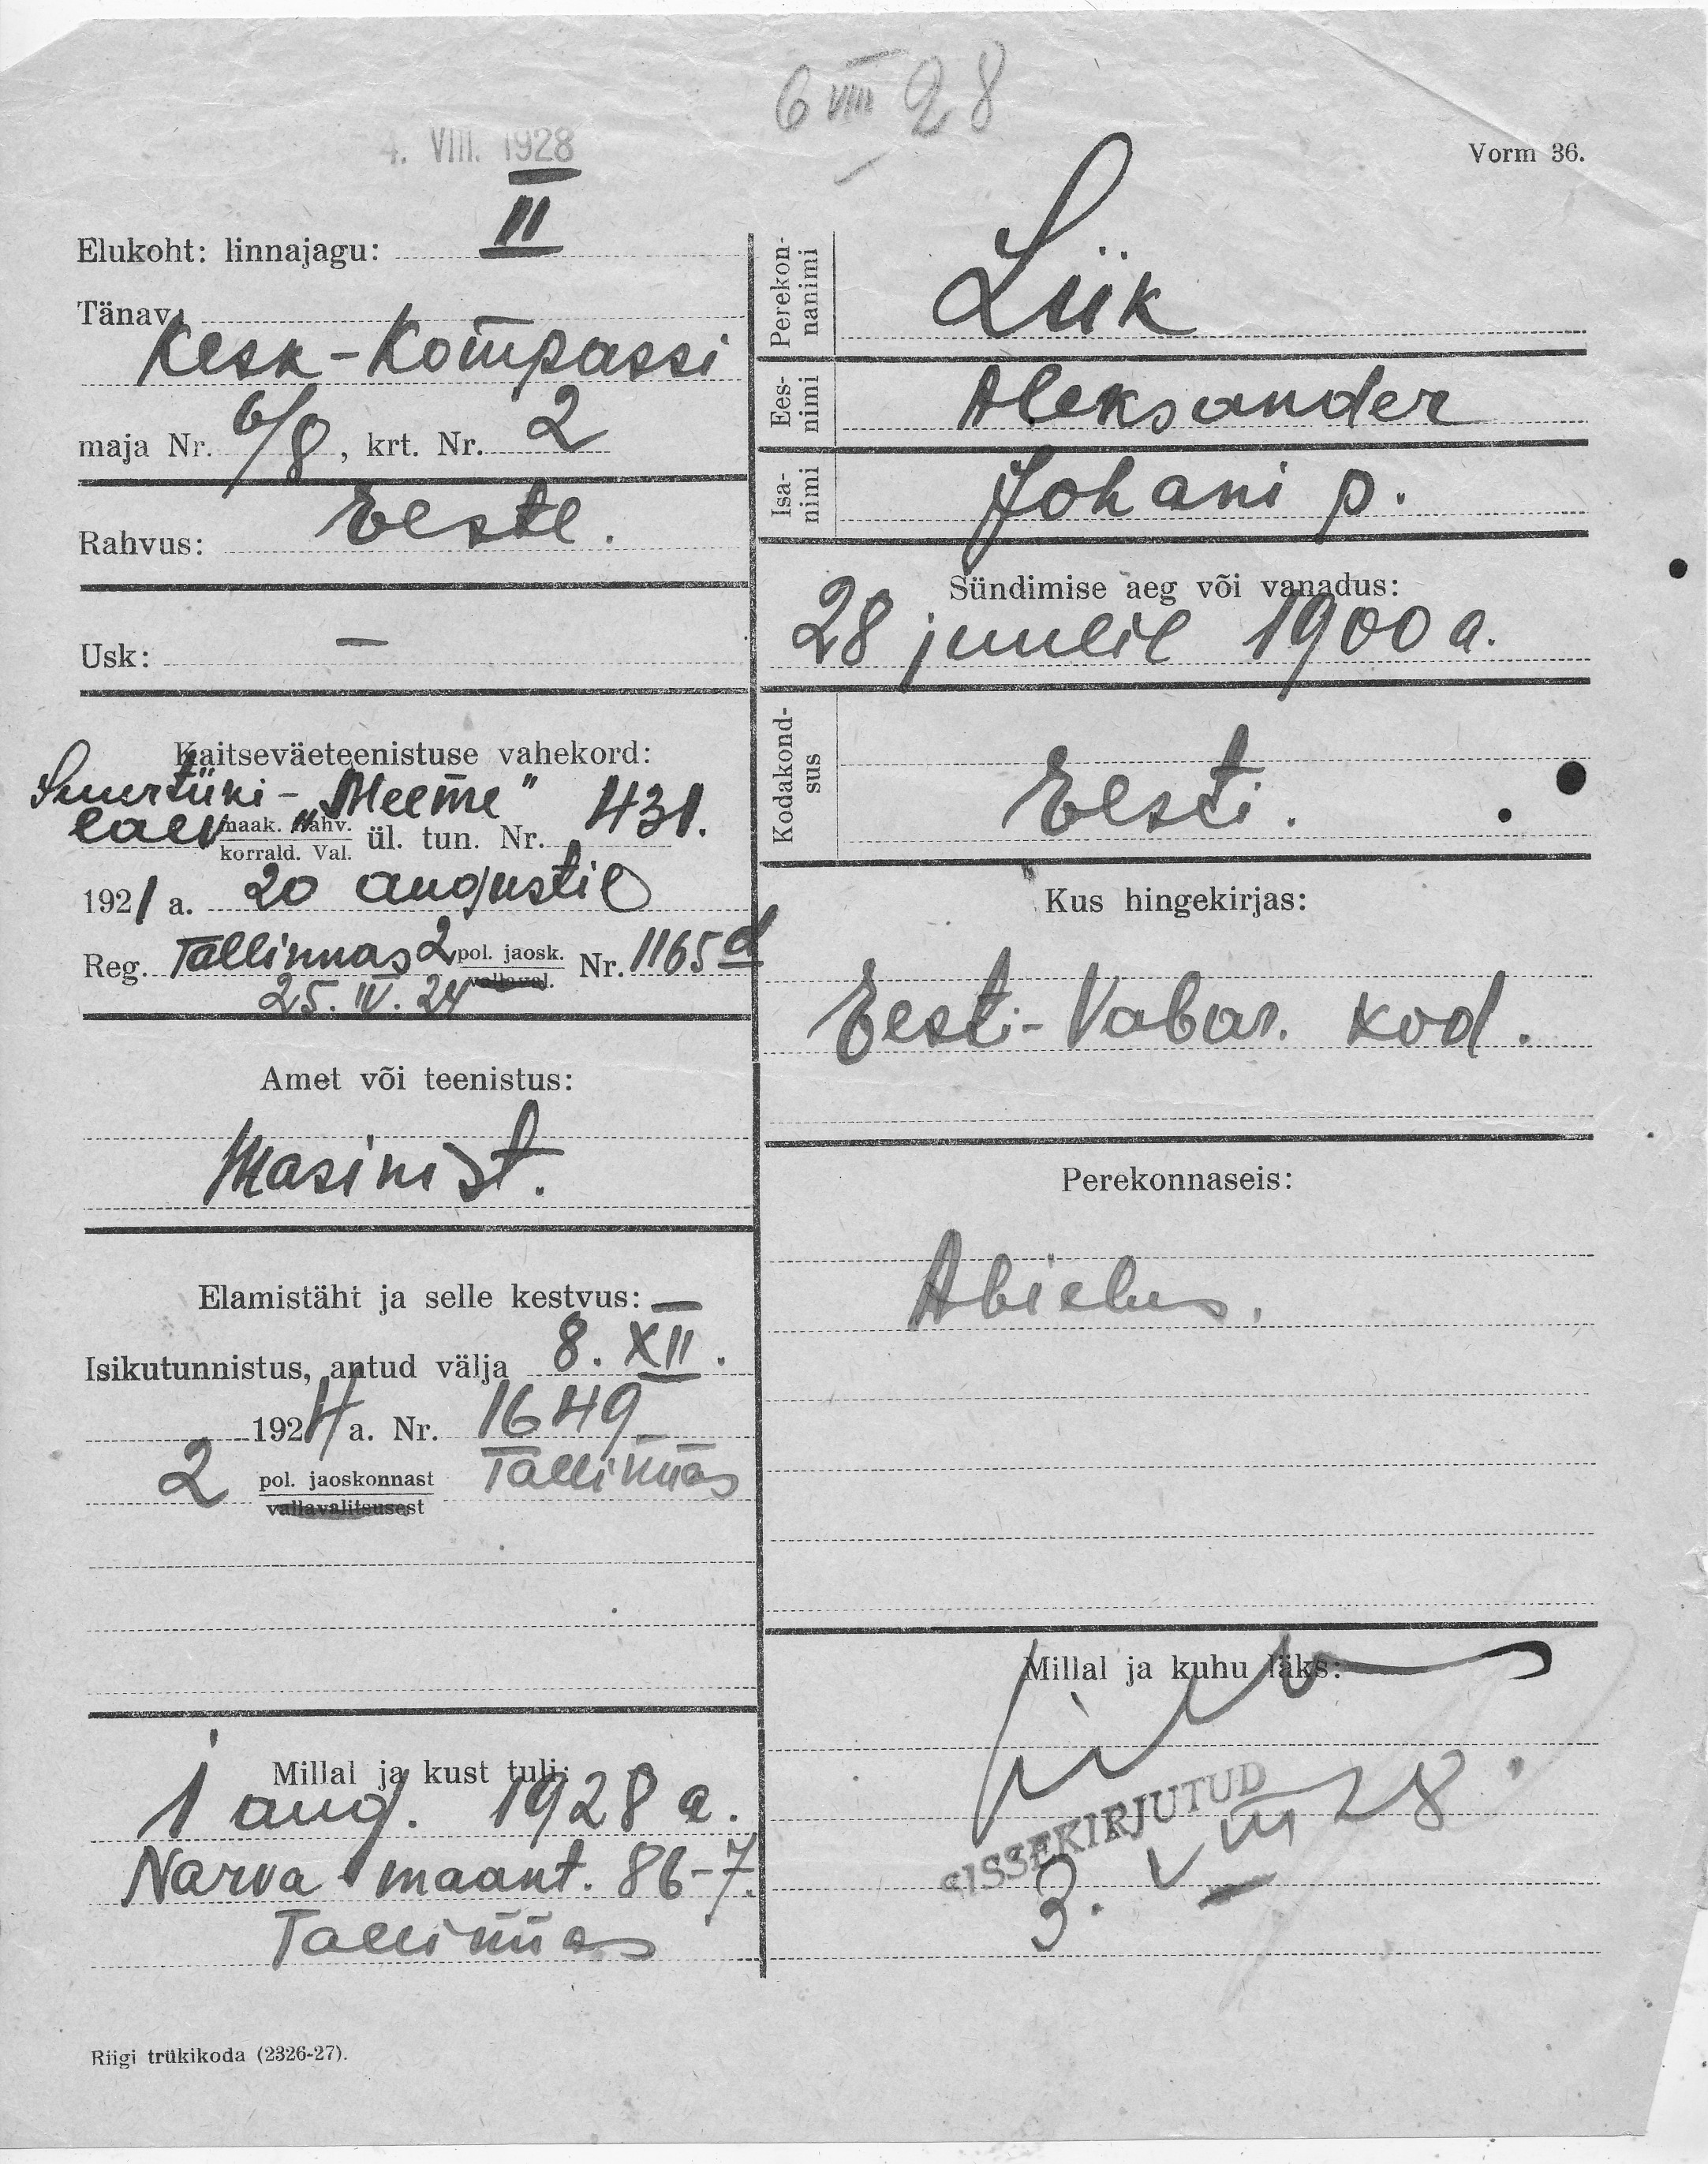 6 VIII 28
4. VIII. 1928
Vorm 36.
Elukoht: linnajagu: II
Tänav:
Kesk-Kompassi
maja Nr. 6/8, krt. Nr. 2
Rahvus: Eestl.
Usk: —
Kaitseväeteenistuse vahekord:
Suurtüki- „Meeme"
laev maak. rahv. ül. tun. Nr. 431.
korrald. Val.
1921 a. 20 augustil
Reg. Tallinnas 2 pol. jaosk. Nr. 1165 d
25. IV. 24 vallaval.
Amet või teenistus:
Masinist.
Elamistäht ja selle kestvus: —
Isikutunnistus, antud välja 8. XII.
1924 a. Nr. 1649
2 pol. jaoskonnast Tallinnas
vallavalitsusest
Millal ja kust tuli:
1 aug. 1928 a.
Narva maant. 86-7.
Tallinnas
Riigi trükikoda (2326-27).
Perekon-
nanimi
Liik
Ees-
nimi
Aleksander
Isa-
nimi
Johani p.
Sündimise aeg või vanadus:
28 juulil 1900 a.
Kodakond-
sus
Eesti.
Kus hingekirjas:
Eesti-Vabar. kod.
Perekonnaseis:
Abielus.
Millal ja kuhu läks:
SISSEKIRJUTUD
3. VIII 28.